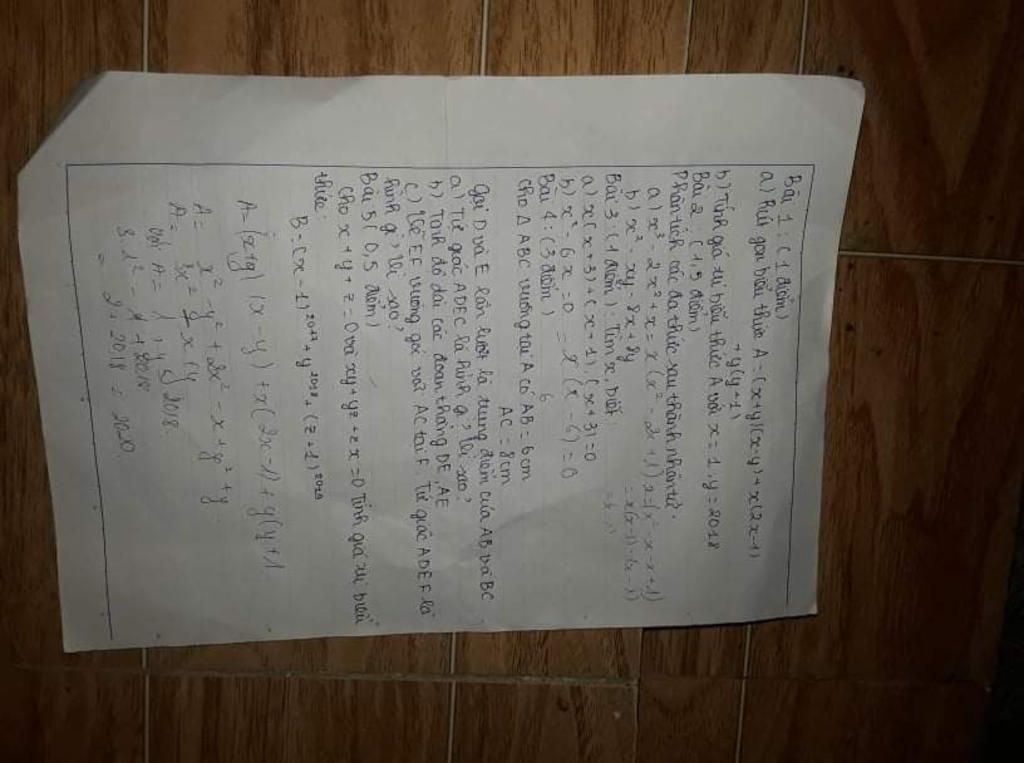 Bài 1: (1 điểm)
a) Rút gọn biểu thức A = (x+y)(x-y) + x(2x-1)
+ y(y+1)
b) Tính giá trị biểu thức A với x = 1, y = 2018
Bài 2 (1,5 điểm)
Phân tích các đa thức sau thành nhân tử.
a) x³ - 2x² + x = x(x² - 2x + 1) = (x² - x - x + 1)
b) x² - xy - 8x + 8y
Bài 3: (1 điểm): Tìm x, biết:
a) x(x+3) + (x+1).(x+3) = 0
b) x² - 6x = 0 = x(x - 6) = 0
6
Bài 4: (3 điểm)
Cho Δ ABC vuông tại A có AB = 6cm
AC = 8cm
Gọi D và E lần lượt là trung điểm của AB và BC
a) Tứ giác ADEC là hình gì, Vì sao?
b) Tính độ dài các đoạn thẳng DE, AE
c) Vẽ EF vuông góc với AC tại F. Tứ giác ADEF là
hình gì, Vì sao?
Bài 5 (0,5 điểm)
Cho x + y + z = 0 và xy + yz + zx = 0 Tính giá trị biểu
thức:
B = (x - 1)²⁰¹⁷ + y²⁰¹⁸ + (z + 1)²⁰¹⁹
A = (x+y) (x - y) + x(2x - 1) + y(y+1
A = x² - y² + 2x² - x + y² + y
A = 3x² - x + y
với A = 1, y = 2018
3.1² - 1 + 2018
= 2 + 2018 = 2020